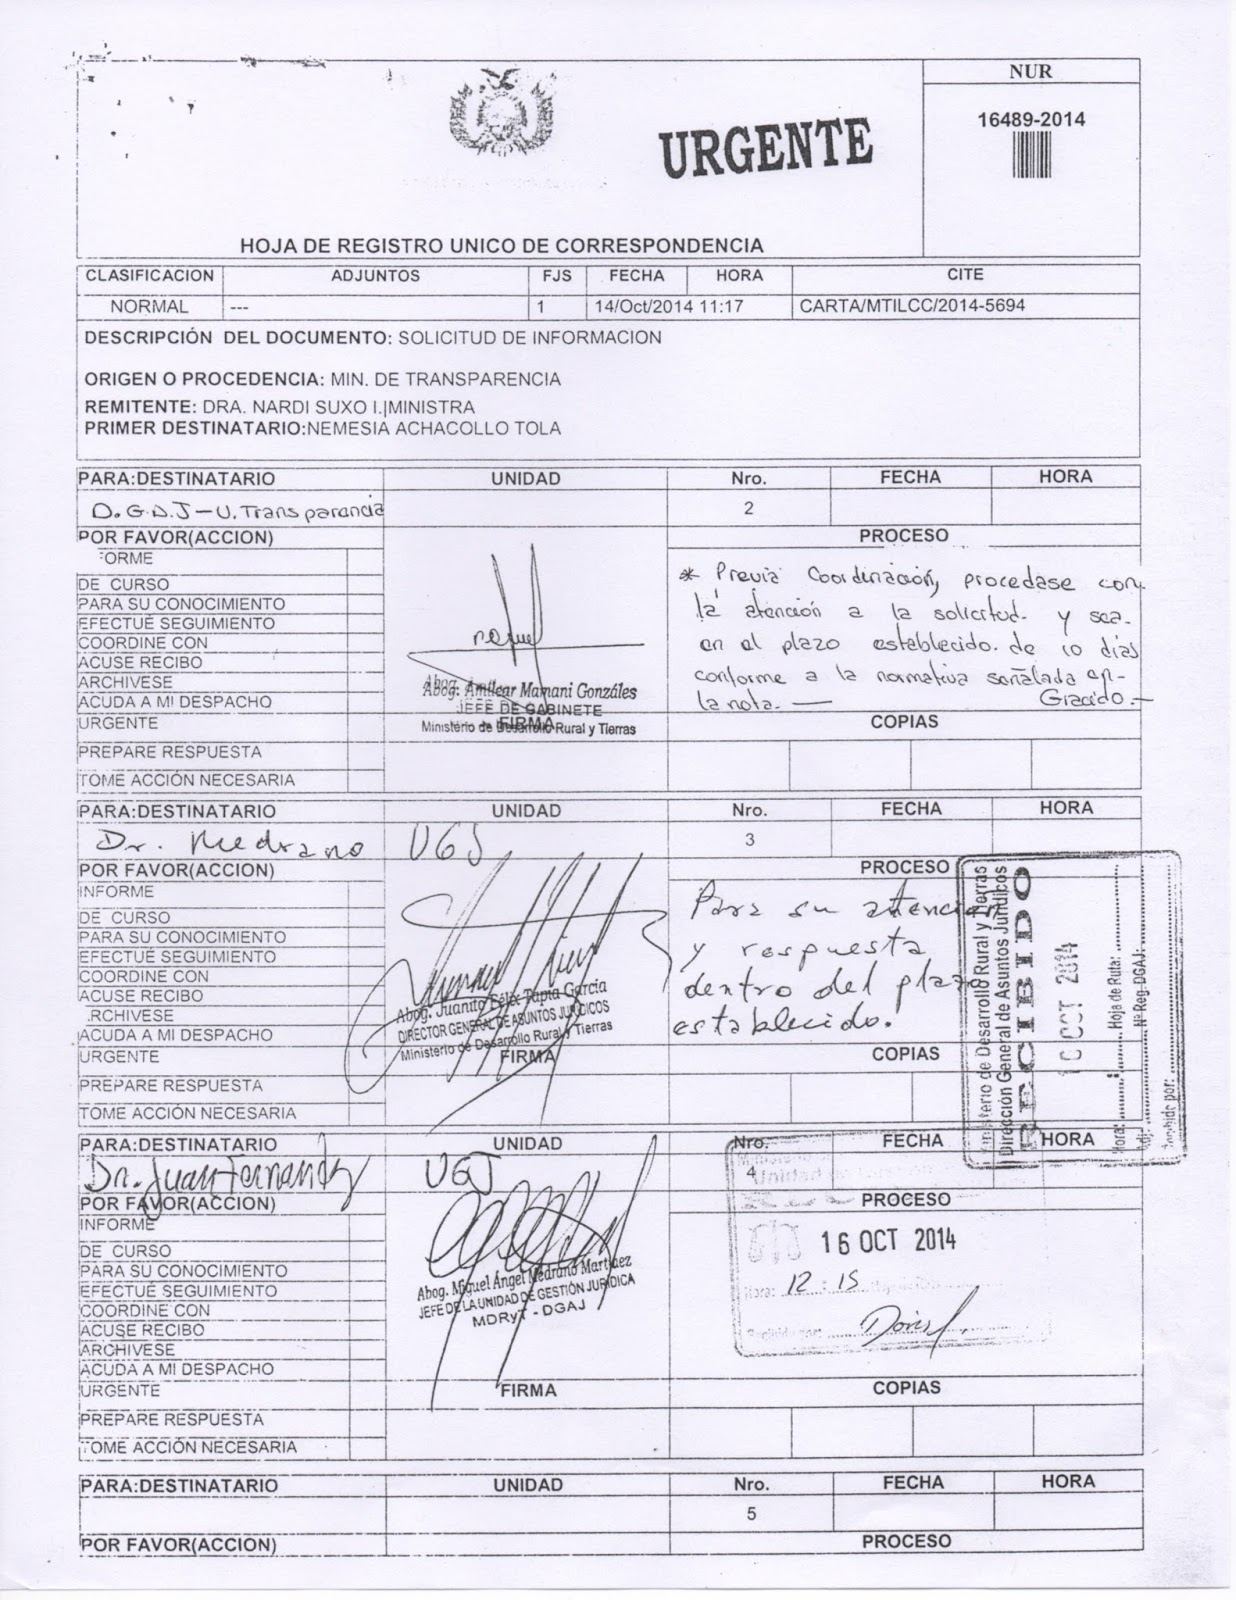 NUR
16489-2014
URGENTE
HOJA DE REGISTRO UNICO DE CORRESPONDENCIA
CLASIFICACION ADJUNTOS FJS FECHA HORA CITE
NORMAL --- 1 14/Oct/2014 11:17 CARTA/MTILCC/2014-5694
DESCRIPCIÓN DEL DOCUMENTO: SOLICITUD DE INFORMACION
ORIGEN O PROCEDENCIA: MIN. DE TRANSPARENCIA
REMITENTE: DRA. NARDI SUXO I.|MINISTRA
PRIMER DESTINATARIO:NEMESIA ACHACOLLO TOLA
PARA:DESTINATARIO UNIDAD Nro. FECHA HORA
D.G.D.J - U. Transparancia 2
POR FAVOR(ACCION) PROCESO
FORME
DE CURSO
PARA SU CONOCIMIENTO
EFECTUE SEGUIMIENTO
COORDINE CON
ACUSE RECIBO
ARCHIVESE
ACUDA A MI DESPACHO
URGENTE
PREPARE RESPUESTA
TOME ACCIÓN NECESARIA
Abog. Amilcar Mamani Gonzáles
JEFE DE GABINETE
Ministerio de Desarrollo Rural y Tierras
FIRMA
* Previa Coordinación, procedase con
la atención a la solicitud. y sea
en el plazo establecido. de 10 días
conforme a la normativa señalada en
la nota. — Gracido.-
COPIAS
PARA:DESTINATARIO UNIDAD Nro. FECHA HORA
Dr. Medrano UGJ 3
POR FAVOR(ACCION) PROCESO
INFORME
DE CURSO
PARA SU CONOCIMIENTO
EFECTUE SEGUIMIENTO
COORDINE CON
ACUSE RECIBO
RCHIVESE
ACUDA A MI DESPACHO
URGENTE
PREPARE RESPUESTA
TOME ACCIÓN NECESARIA
Abog. Juanito Félix Tapia García
DIRECTOR GENERAL DE ASUNTOS JURÍDICOS
Ministerio de Desarrollo Rural y Tierras
FIRMA
Para su atención
y respuesta
dentro del plazo
establecido.
COPIAS
Ministerio de Desarrollo Rural y Tierras
Dirección General de Asuntos Jurídicos
RECIBIDO
OCT 2014
Hora: Hoja de Ruta:
Adj. Nº Reg. DGAJ:
Recibido por:
PARA:DESTINATARIO UNIDAD Nro. FECHA HORA
Dr. Juan Fernandez UGJ 4
POR FAVOR(ACCION) PROCESO
INFORME
DE CURSO
PARA SU CONOCIMIENTO
EFECTUE SEGUIMIENTO
COORDINE CON
ACUSE RECIBO
ARCHIVESE
ACUDA A MI DESPACHO
URGENTE
PREPARE RESPUESTA
TOME ACCIÓN NECESARIA
Abog. Miguel Angel Medrano Martinez
JEFE DE LA UNIDAD DE GESTIÓN JURÍDICA
MDRyT - DGAJ
FIRMA
Unidad
16 OCT 2014
Hora: 12:15
Recibido por:
COPIAS
PARA:DESTINATARIO UNIDAD Nro. FECHA HORA
5
POR FAVOR(ACCION) PROCESO